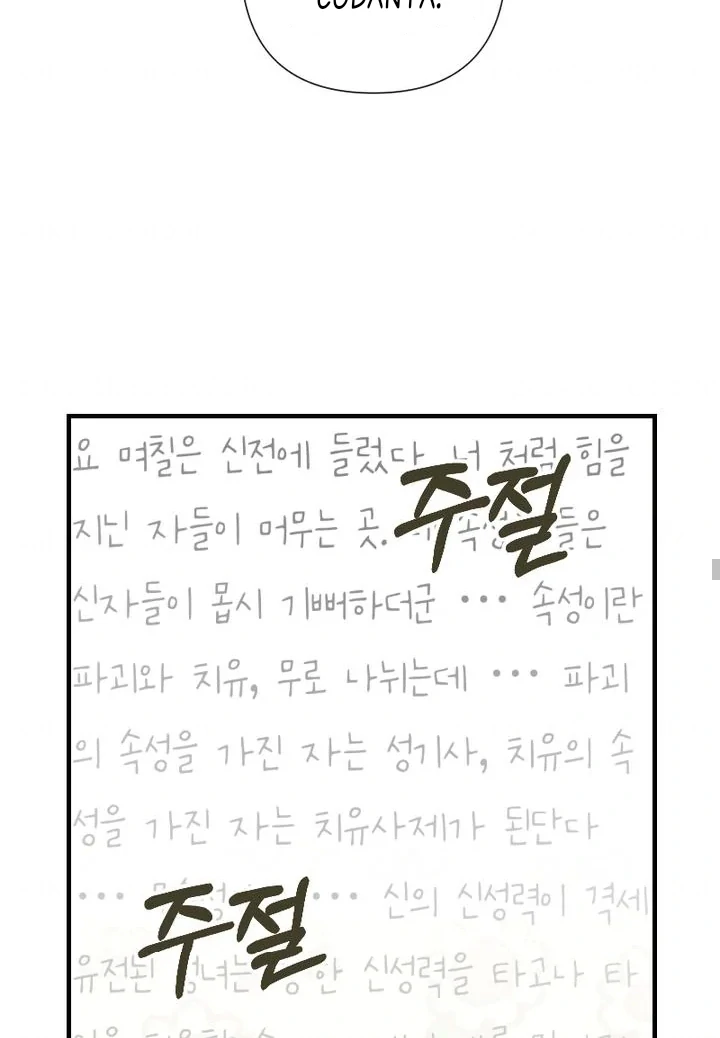 요 며칠은 신전에 들렀다. 너 처럼 힘을
주절
지닌 자들이 머무는 곳. 들은
신자들이 몹시 기뻐하더군 ••• 속성이란
파괴와 치유, 무로 나뉘는데 ••• 파괴
의 속성을 가진 자는 성기사, 치유의 속
성을 가진 자는 치유사제가 된단다
••• ••• 신의 신성력이 격세
주절
유전된 성녀는 신성력을 타고나 타